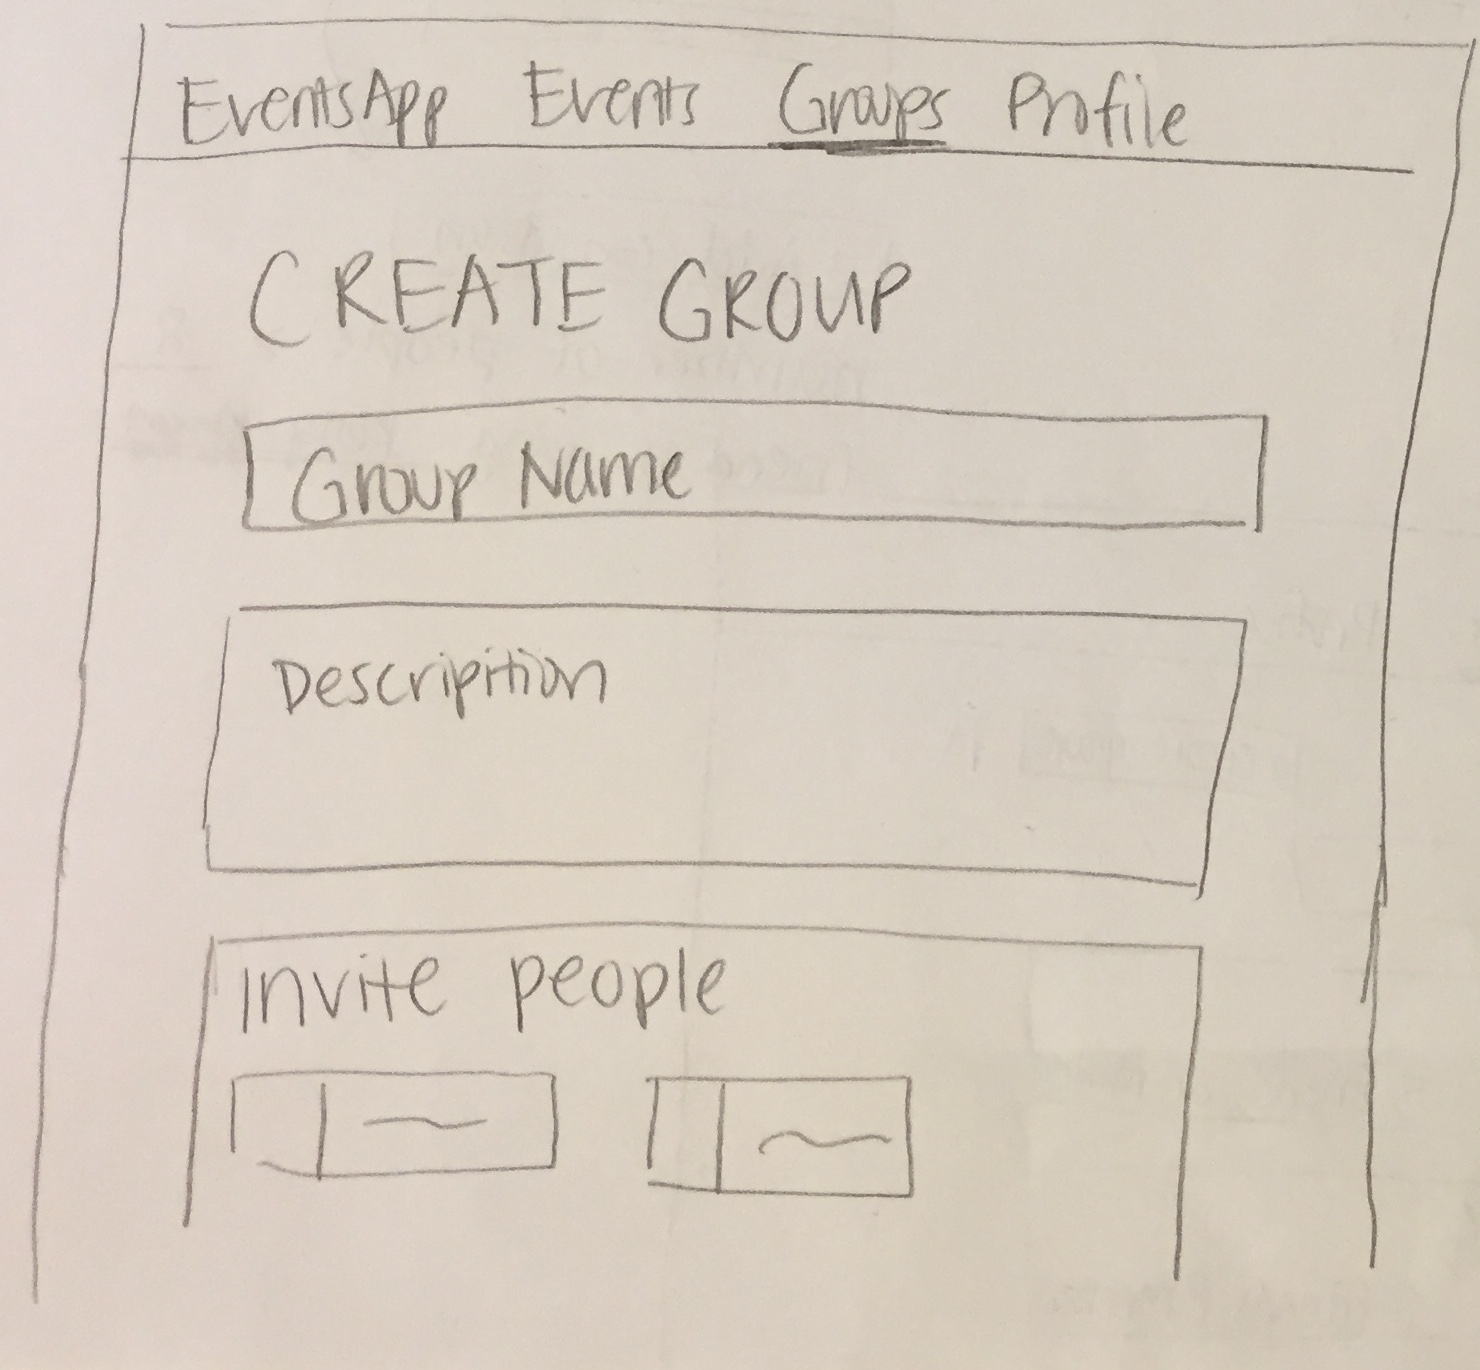 EventsApp Events Groups Profile
CREATE GROUP
Group Name
Descripition
Invite people